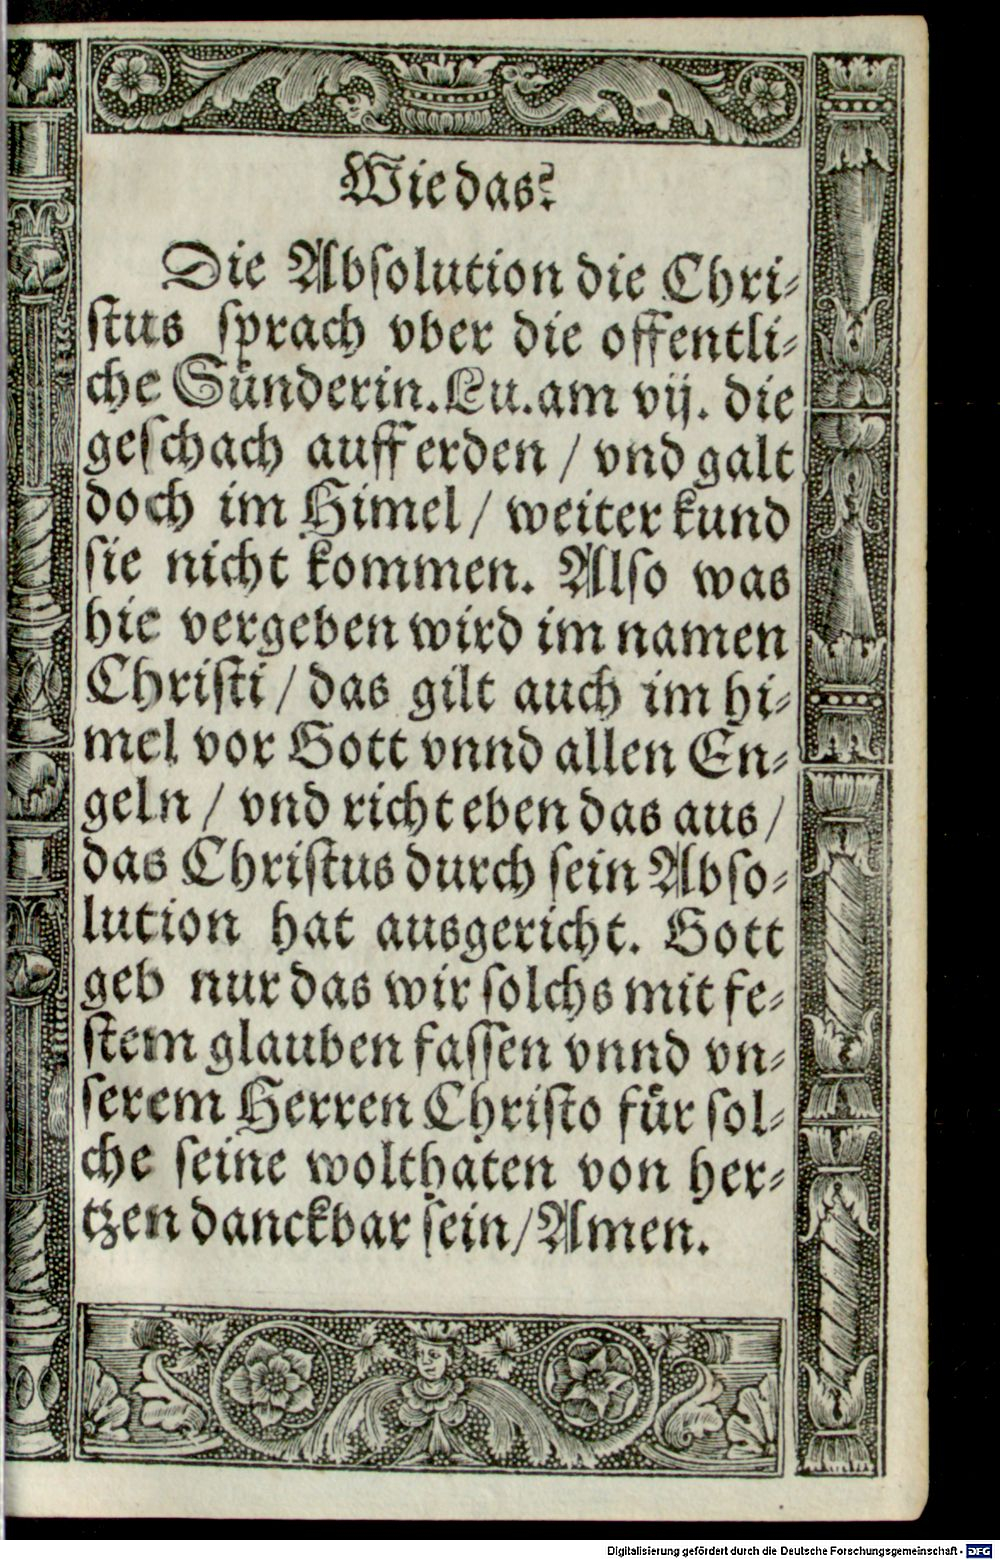 Wie das?
Die Absolution die Chri⸗
stus sprach vber die offentli⸗
che Sünderin. Lu. am vij. die
geschach auff erden / vnd galt
doch im Himel / weiter kund
sie nicht kommen. Also was
hie vergeben wird im namen
Christi / das gilt auch im hi⸗
mel vor Gott vnnd allen En⸗
geln / vnd richt eben das aus /
das Christus durch sein Abso⸗
lution hat ausgericht. Gott
geb nur das wir solchs mit fe⸗
stem glauben fassen vnnd vn⸗
serem Herren Christo für sol⸗
che seine wolthaten von her⸗
tzen danckbar sein / Amen.
Digitalisierung gefördert durch die Deutsche Forschungsgemeinschaft - DFG